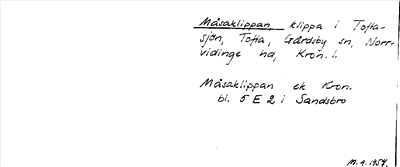 Måsaklippan, klippa i Tofta-
sjön, Tofta, Gårdsby sn, Norr-
vidinge hd, Kron. l.
Måsaklippan ek Kron.
bl. 5 E 2 i Sandsbro
M.A. 1954.